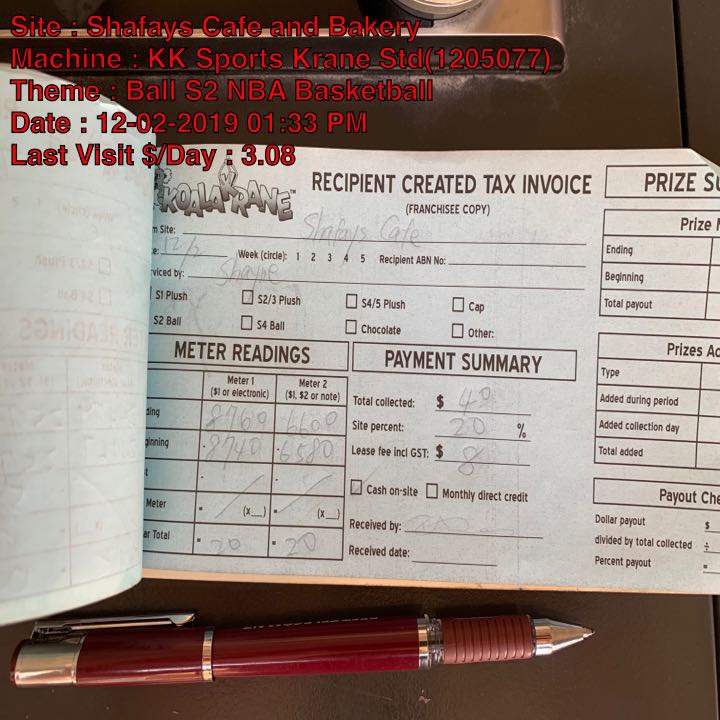 Site : Shafays Cafe and Bakery
Machine : KK Sports Krane Std(1205077)
Theme : Ball S2 NBA Basketball
Date : 12-02-2019 01:33 PM
Last Visit $/Day : 3.08
KOALA KRANE™
RECIPIENT CREATED TAX INVOICE
(FRANCHISEE COPY)
m Site: Shafays Cafe
e: 12/2 Week (circle): 1 2 3 4 5 Recipient ABN No:
viced by: Shayne
S1 Plush S2/3 Plush S4/5 Plush Cap
S2 Ball S4 Ball Chocolate Other:
METER READINGS
Meter 1 Meter 2
($1 or electronic) ($1, $2 or note)
ding 8760 6600
ginning - 8740 - 6580
t - -
Meter = (x__) = (x__)
ar Total = 20 = 20
PAYMENT SUMMARY
Total collected: $ 40
Site percent: 20 %
Lease fee incl GST: $ 8
Cash on-site Monthly direct credit
Received by:
Received date:
PRIZE SU
Prize
Ending
Beginning
Total payout
Prizes Ad
Type
Added during period
Added collection day
Total added
Payout Che
Dollar payout $
divided by total collected ÷
Percent payout =